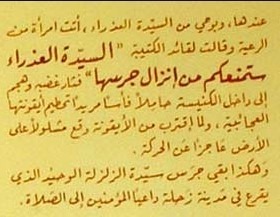 عندها، وبوحي من السيّدة العذراء، أتت امرأة من
الرعية وقالت لقائد الكتيبة "السيّدة العذراء
ستمنعكم من إنزال جرسها" فثار غضبه وهجم
إلى داخل الكنيسة حاملاً فأسا مريدا تحطيم أيقونتها
العجائبية، ولما اقترب من الأيقونة وقع مشلولاً على
الأرض عاجزاً عن الحركة.
وهكذا بقي جرس سيّدة الزلزلة الوحيد الذي
يقرع في مدينة زحلة داعياً المؤمنين إلى الصلاة.